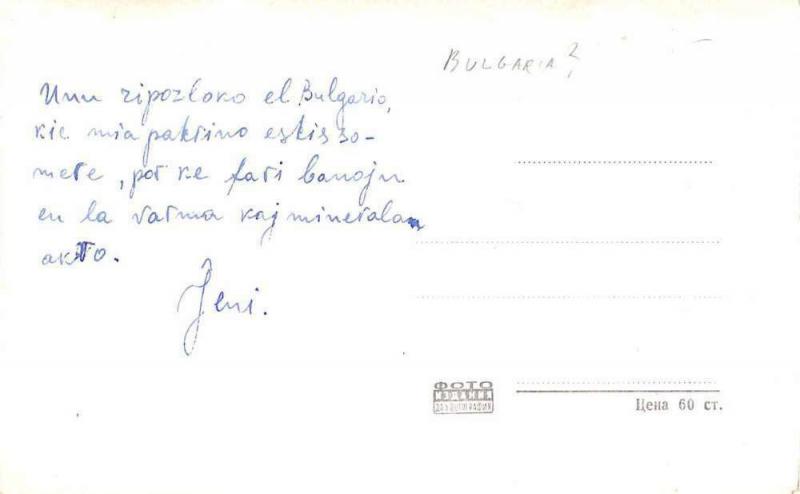 BULGARIA?
Unu ripozloko el Bulgario,
kie mia patrino estis so-
mere, por ke fari banojn
en la varma kaj mineralan
akvo.
Ĵeni.
ФОТО
ИЗДАНИЯ
Цена 60 ст.